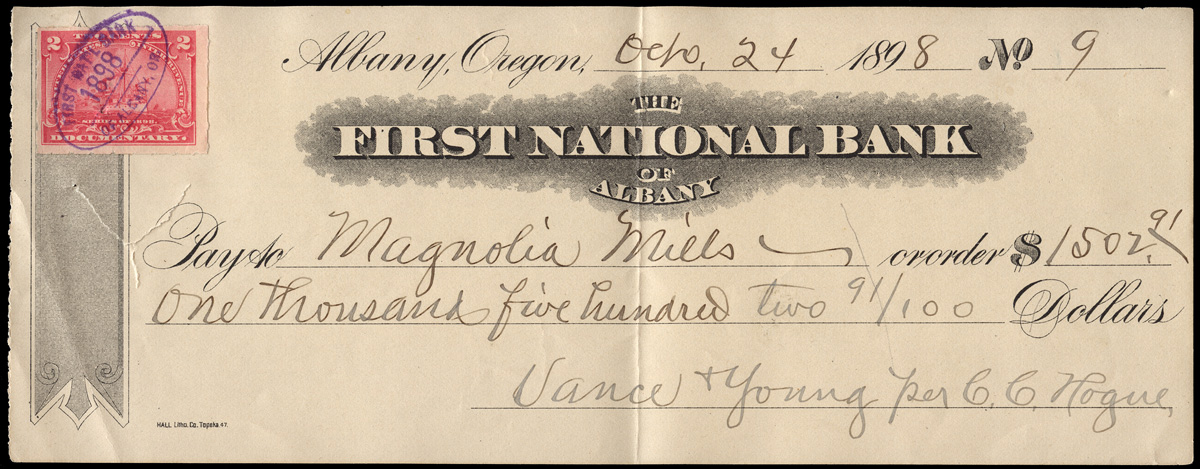 TWO CENTS
2 2
SERIES OF 1898.
DOCUMENTARY.
FIRST NAT'L BANK
1898
Albany, Oregon, Octo. 24 1898 No. 9
THE
FIRST NATIONAL BANK
OF
ALBANY
Pay to Magnolia Mills or order $1502.91/
One thousand five hundred two 91/100 Dollars
Vance & Young per C. C. Hogue
HALL Litho. Co., Topeka